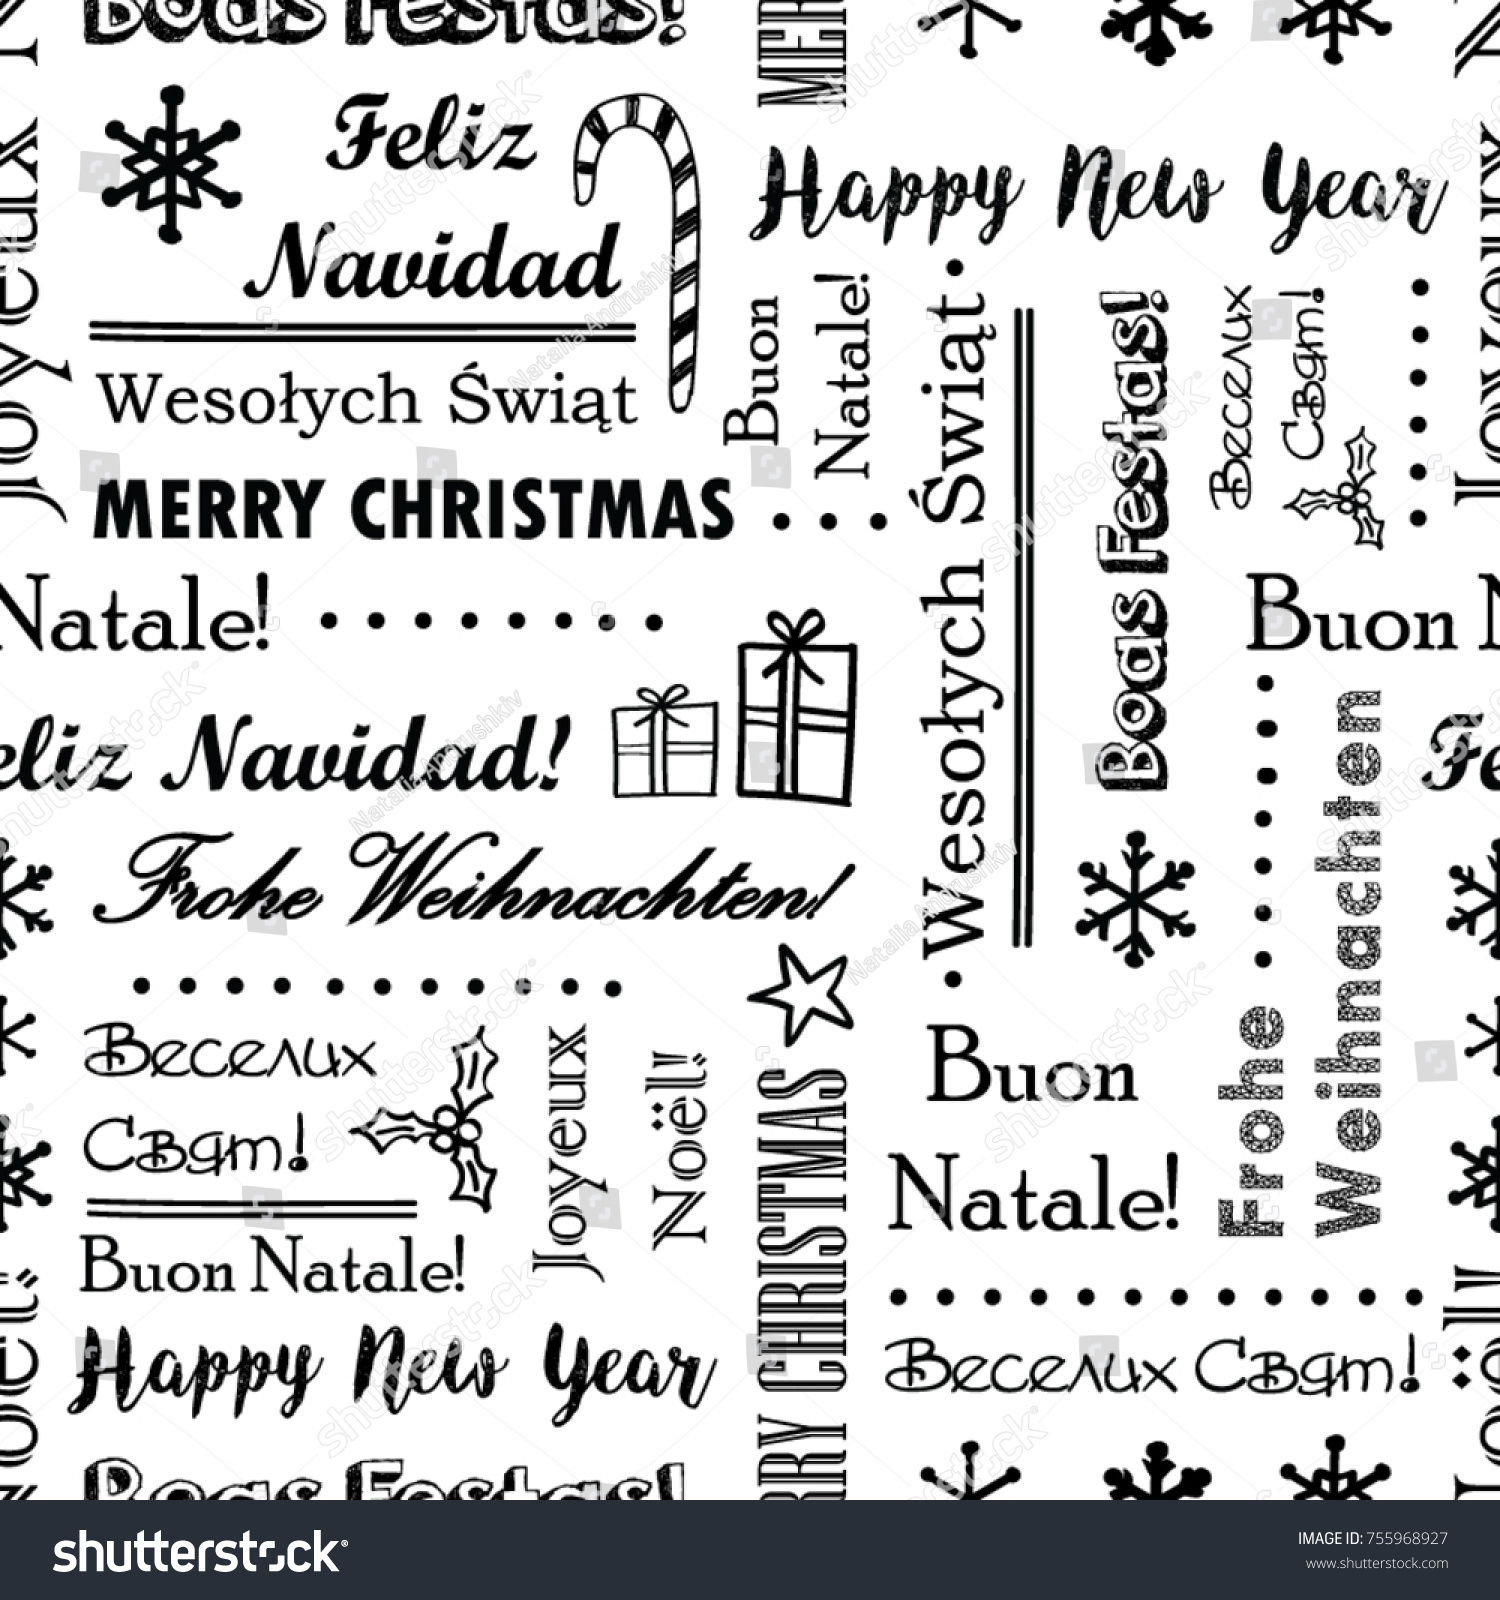 Boas Festas!
Feliz
Navidad
Wesołych Świąt
MERRY CHRISTMAS
Natale!
eliz Navidad!
Frohe Weihnachten!
Веселих
Свят!
Buon Natale!
Happy New Year
Boas Festas!
Joyeux
Noël!
MERRY CHRISTMAS
Happy New Year
Buon
Natale!
Wesołych Świąt
Boas Festas!
Веселих
Свят!
Buon N
Fe
Frohe
Weihnachten
Buon
Natale!
Веселих Свят!
Joyeux
Noël!
shutterstock
Natalia Andrushkiv
shutterstock
IMAGE ID: 755968927
www.shutterstock.com